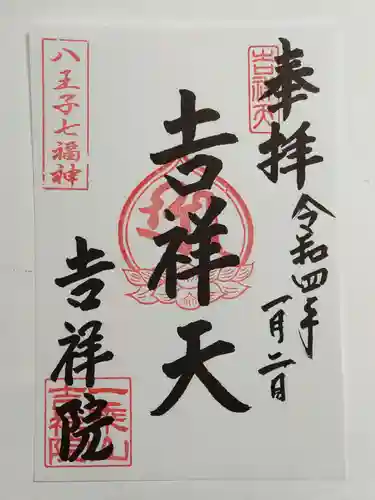 奉拝
令和四年
一月二日
吉祥天
吉祥天
八王子七福神
吉祥院
一乗山
吉祥院